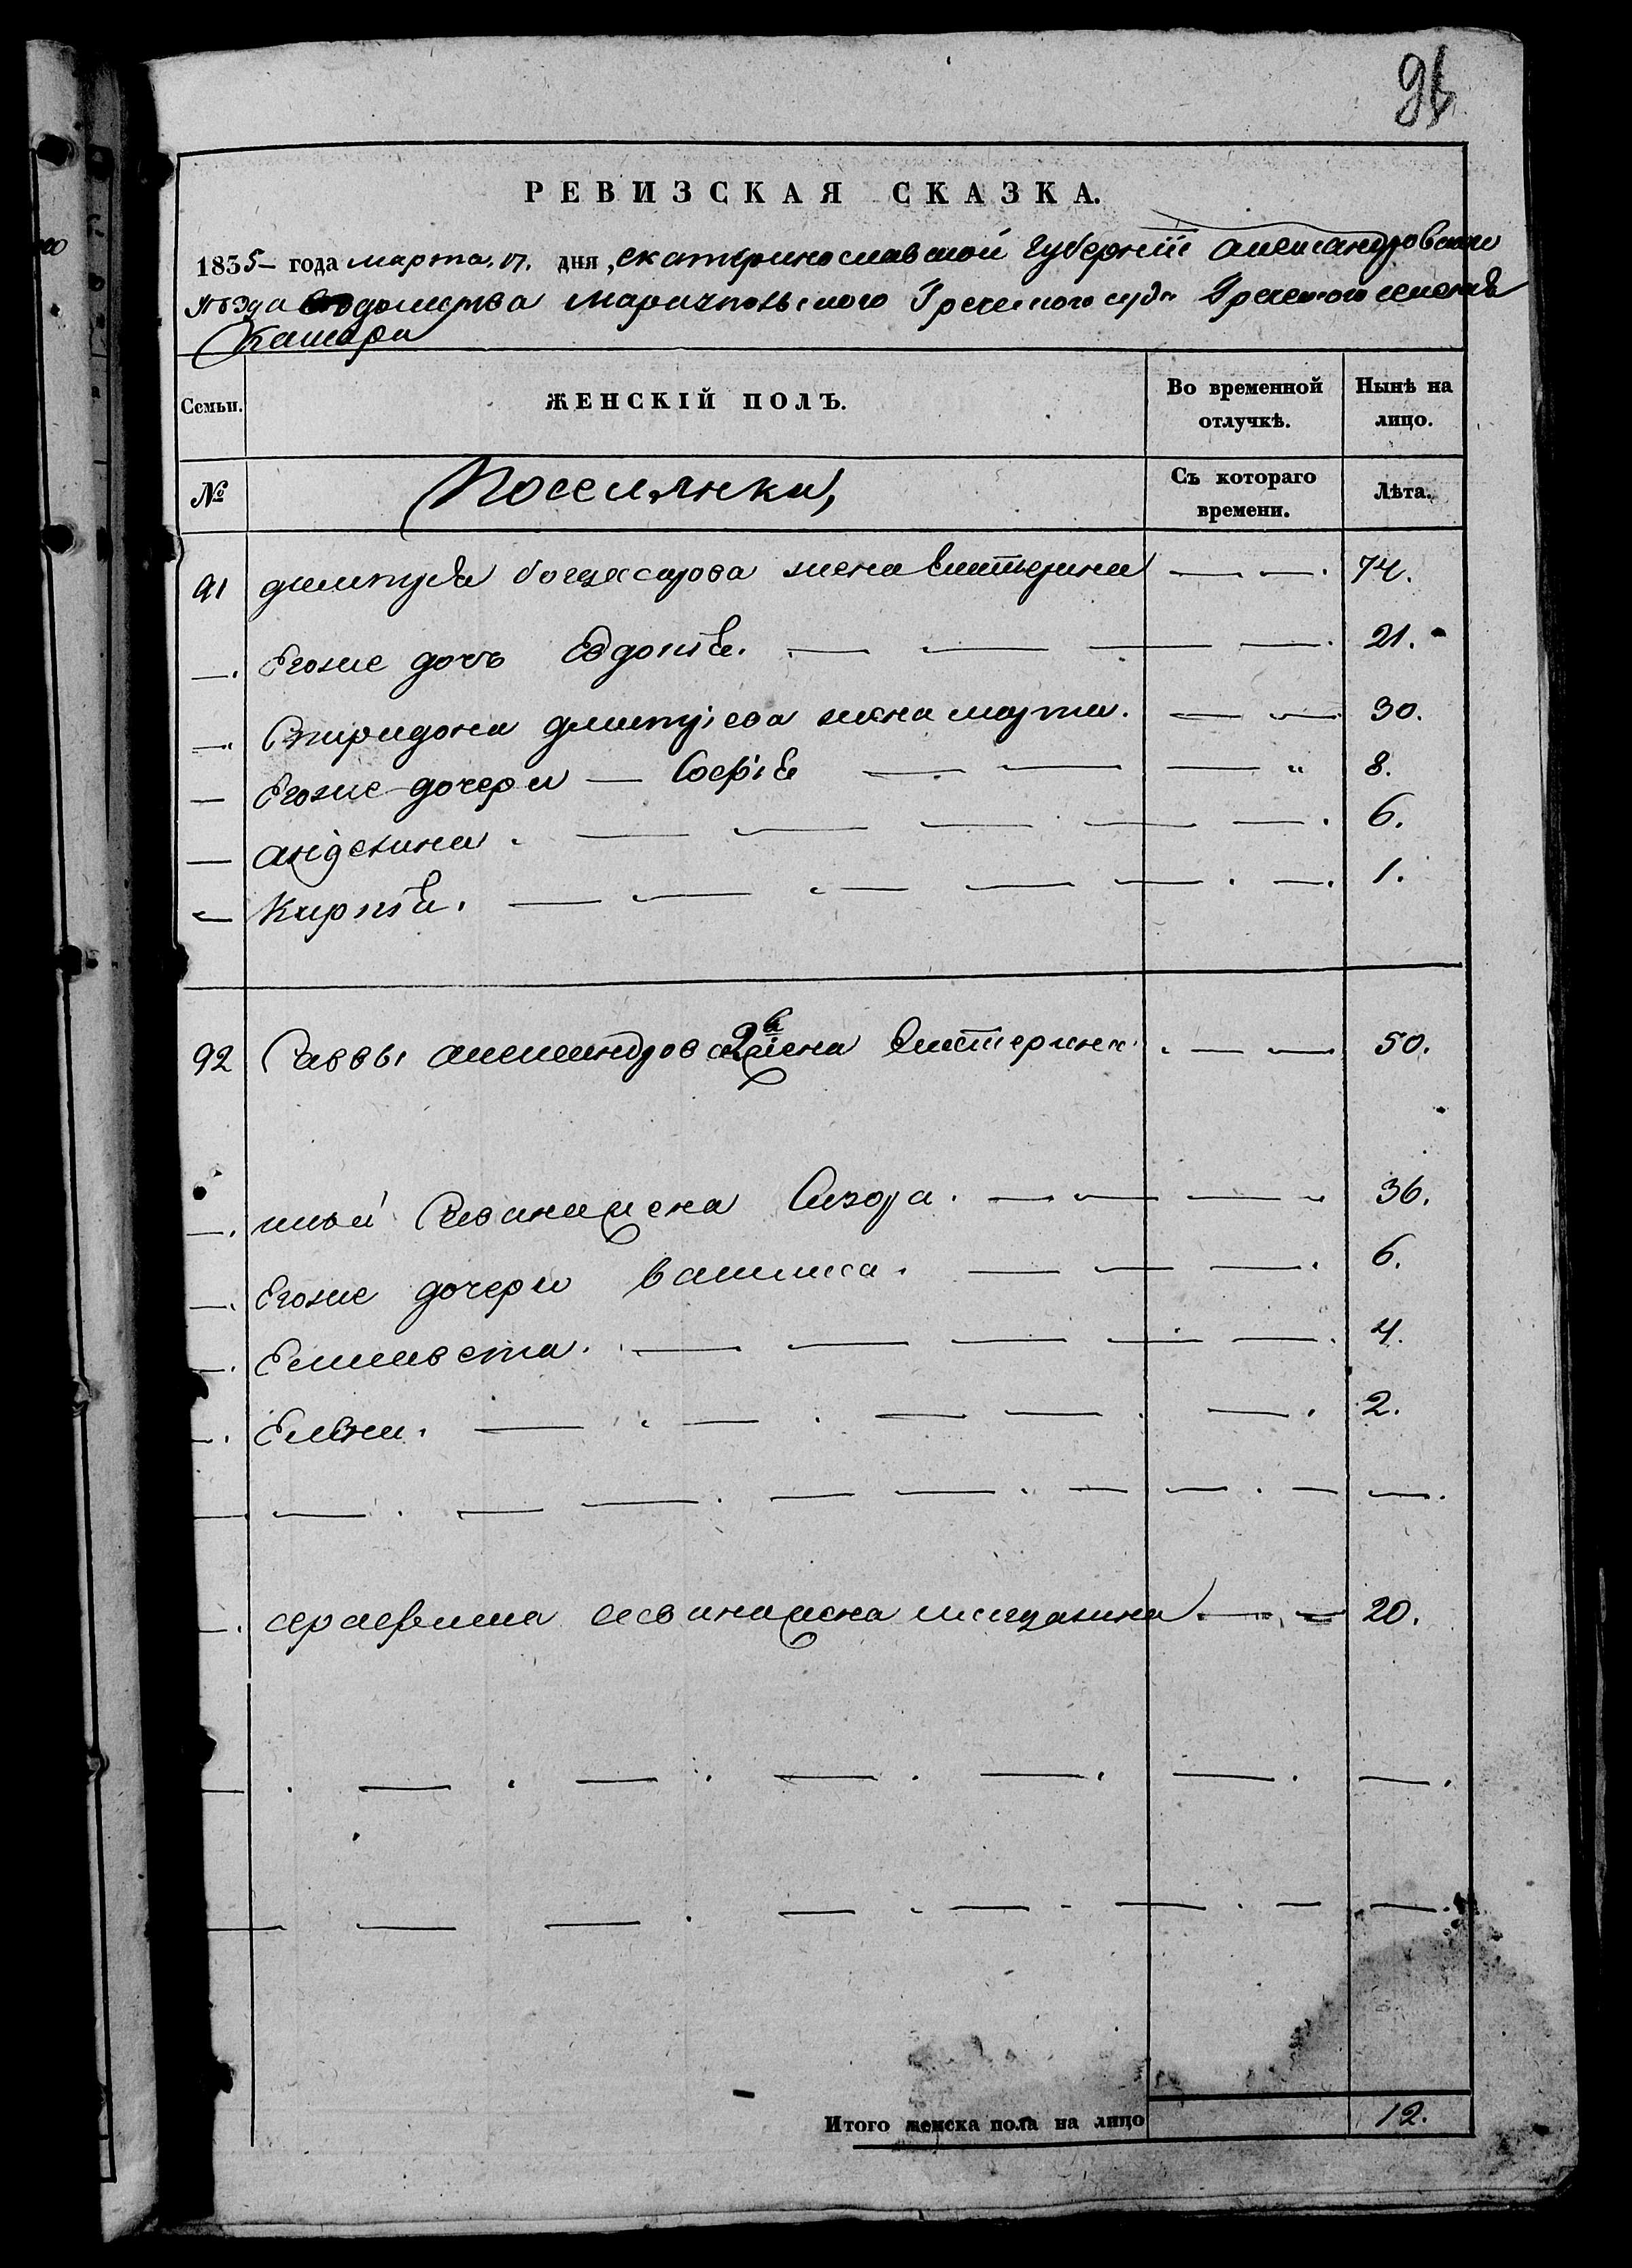 96
РЕВИЗСКАЯ СКАЗКА.
1835 года марта 17. дня, екатеринославской губерніи александровскаго
уѣзда ведомства мариупольского Греческого суда Греческого селенія
Камара
Семьи. ЖЕНСКІЙ ПОЛЪ. Во временной отлучкѣ. Нынѣ на лицо.
№ Поселянки, Съ котораго времени. Лѣта.
91 димитрія жена екатерина — — 74.
—. Егоже дочь Евдокія. — — — — 21.
—. Спиридона димитріева жена марта. — — 30.
— Егоже дочери — Софія — — — " 8.
— ангелина. — — — — — 6.
— Киркія. — — — — — — 1.
92 Саввы александрова 2я жена екатерина — — 50.
—. Савина жена — — — 36.
—. Егоже дочери василиса. — — — 6.
—. Елисавета. — — — — — 4.
—. Елена. — — — — — 2.
— — — — — — — — — —.
—. савина жена магдалина — — 20.
— — — — — — — —.
— — — — — — — — —.
Итого женска пола на лицо 12.